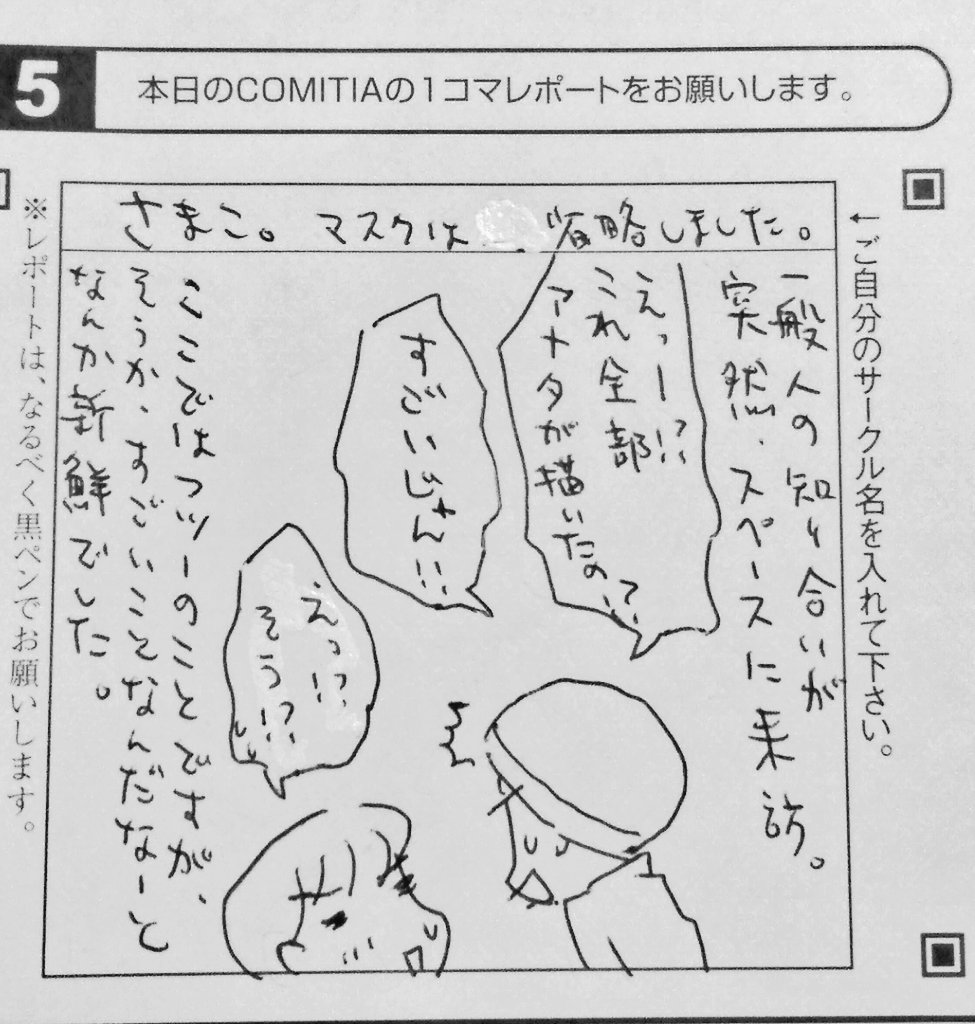 5
本日のCOMITIAの1コマレポートをお願いします。
←ご自分のサークル名を入れて下さい。
さまこ。 マスクは 省略しました。
一般人の知り合いが
突然、スペースに来訪。
えっー!?
これ全部
アナタが描いたの!?
すごいじゃん!!
えっ!?
そう!?
ここではフツーのことですが、
そうか、すごいことなんだなーと
なんか新鮮でした。
※レポートは、なるべく黒ペンでお願いします。